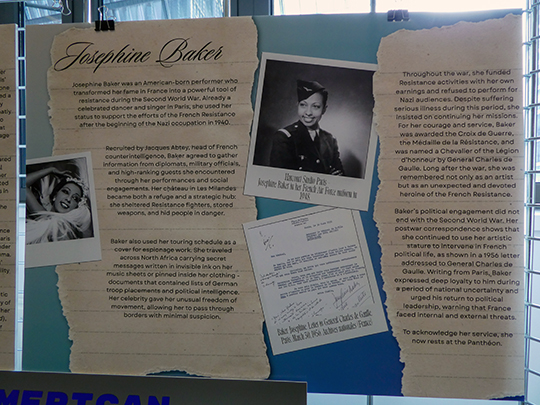 Josephine Baker
Josephine Baker was an American-born performer who
transformed her fame in France into a powerful tool of
resistance during the Second World War. Already a
celebrated dancer and singer in Paris, she used her
status to support the efforts of the French Resistance
after the beginning of the Nazi occupation in 1940.
Recruited by Jacques Abtey, head of French
counterintelligence, Baker agreed to gather
information from diplomats, military officials
and high-ranking guests she encountered
through her performances and social
engagements. Her château in Les Milandes
became both a refuge and a strategic hub:
she sheltered Resistance fighters, stored
weapons, and hid people in danger.
Baker also used her touring schedule as a
cover for espionage work. She traveled
across North Africa carrying secret
messages written in invisible ink on her
music sheets or pinned inside her clothing
documents that contained lists of German
troop placements and political intelligence.
Her celebrity gave her unusual freedom of
movement, allowing her to pass through
borders with minimal suspicion.
Harcourt Studio Paris
Josephine Baker in her French Air Force uniform in
1948
Baker Josephine, Letter to General Charles de Gaulle,
Paris, March 30, 1956. Archives nationales (France)
Throughout the war, she funded
Resistance activities with her own
earnings and refused to perform for
Nazi audiences. Despite suffering
serious illness during this period, she
insisted on continuing her missions.
For her courage and service, Baker
was awarded the Croix de Guerre,
the Médaille de la Résistance, and
was named a Chevalier of the Légion
d'honneur by General Charles de
Gaulle. Long after the war, she was
remembered not only as an artist
but as an unexpected and devoted
heroine of the French Resistance.
Baker's political engagement did not
end with the Second World War. Her
postwar correspondence shows that
she continued to use her artistic
stature to intervene in French
political life, as shown in a 1956 letter
addressed to General Charles de
Gaulle. Writing from Paris, Baker
expressed deep loyalty to him during
a period of national uncertainty and
urged his return to political
leadership, warning that France
faced internal and external threats.
To acknowledge her service, she
now rests at the Panthéon.
AMERICAN